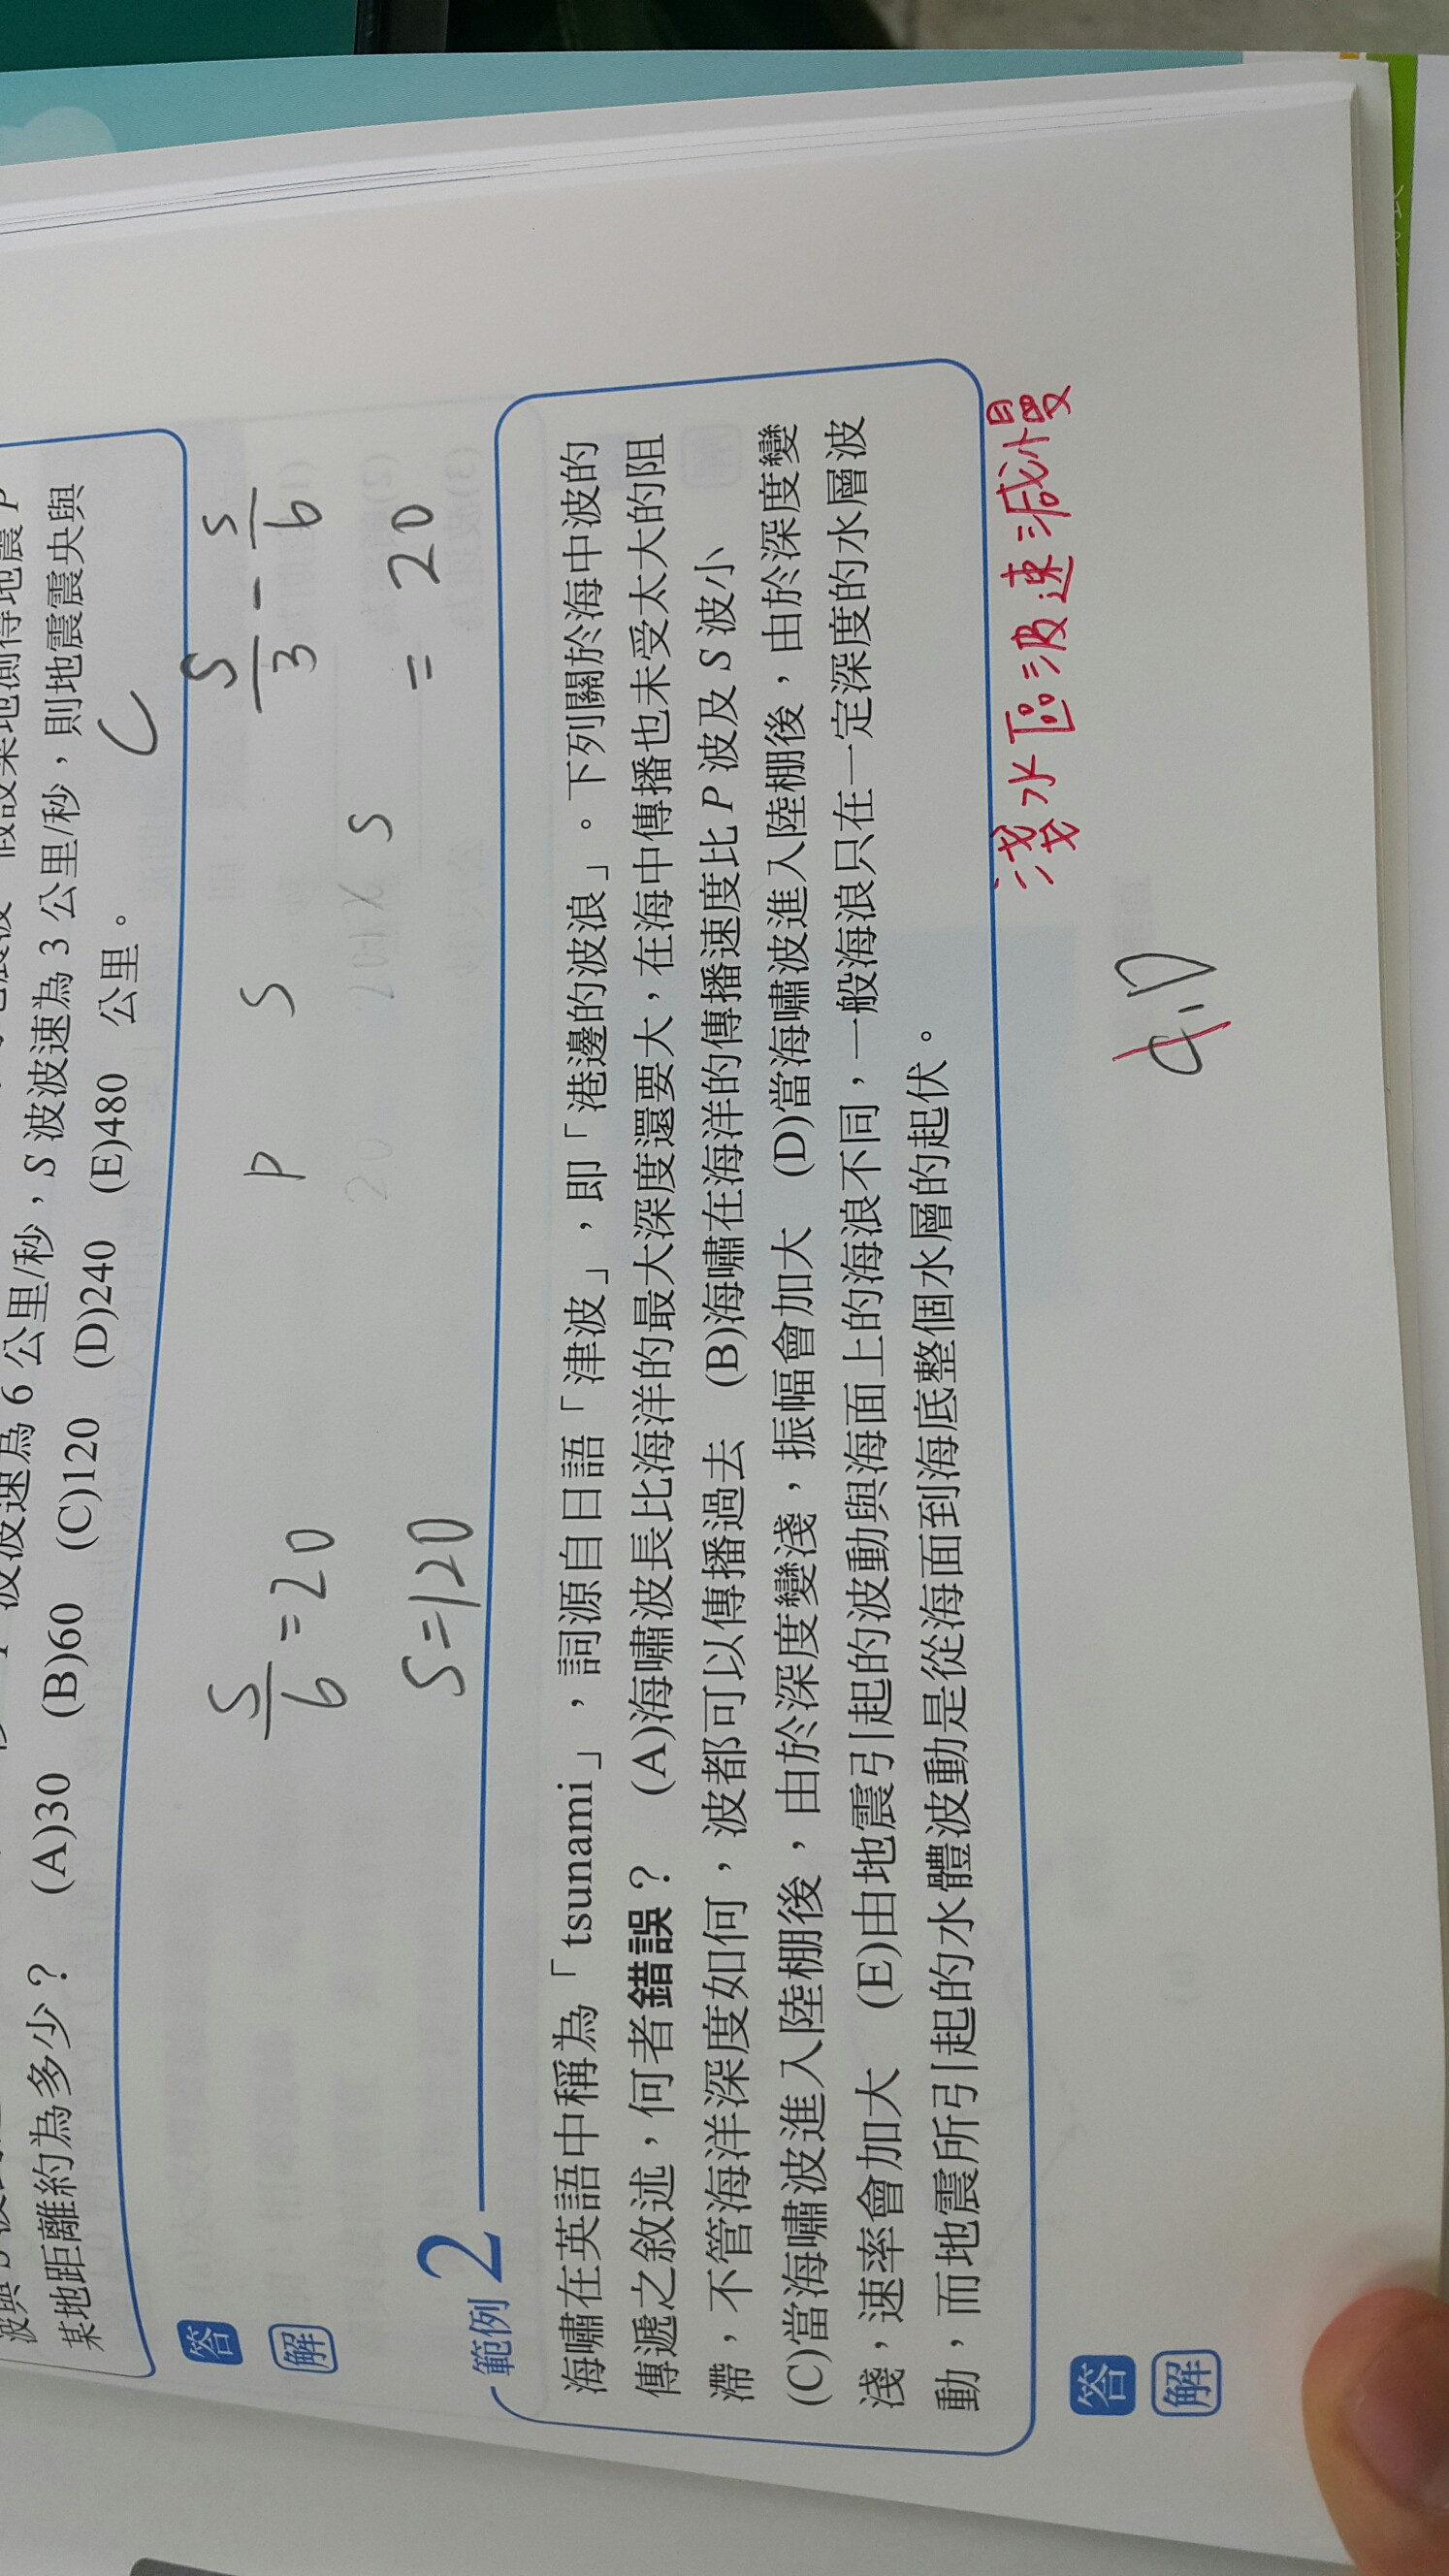 某地距離約為多少？ (A)30 (B)60 (C)120 (D)240 (E)480 公里。
C
答
解
S/6 = 20
S = 120
P S
S/3 - S/6
= 20 S
範例 2
海嘯在英語中稱為「tsunami」，詞源自日語「津波」，即「港邊的波浪」。下列關於海中波的
傳遞之敘述，何者錯誤？ (A)海嘯波長比海洋的最大深度還要大，在海中傳播也未受太大的阻
滯，不管海洋深度如何，波都可以傳播過去 (B)海嘯在海洋的傳播速度比 P 波及 S 波小
(C)當海嘯波進入陸棚後，由於深度變淺，振幅會加大 (D)當海嘯波進入陸棚後，由於深度變
淺，速率會加大 (E)由地震引起的波動與海面上的海浪不同，一般海浪只在一定深度的水層波
動，而地震所引起的水體波動是從海面到海底整個水層的起伏。
淺水區波速減慢
答
解
D